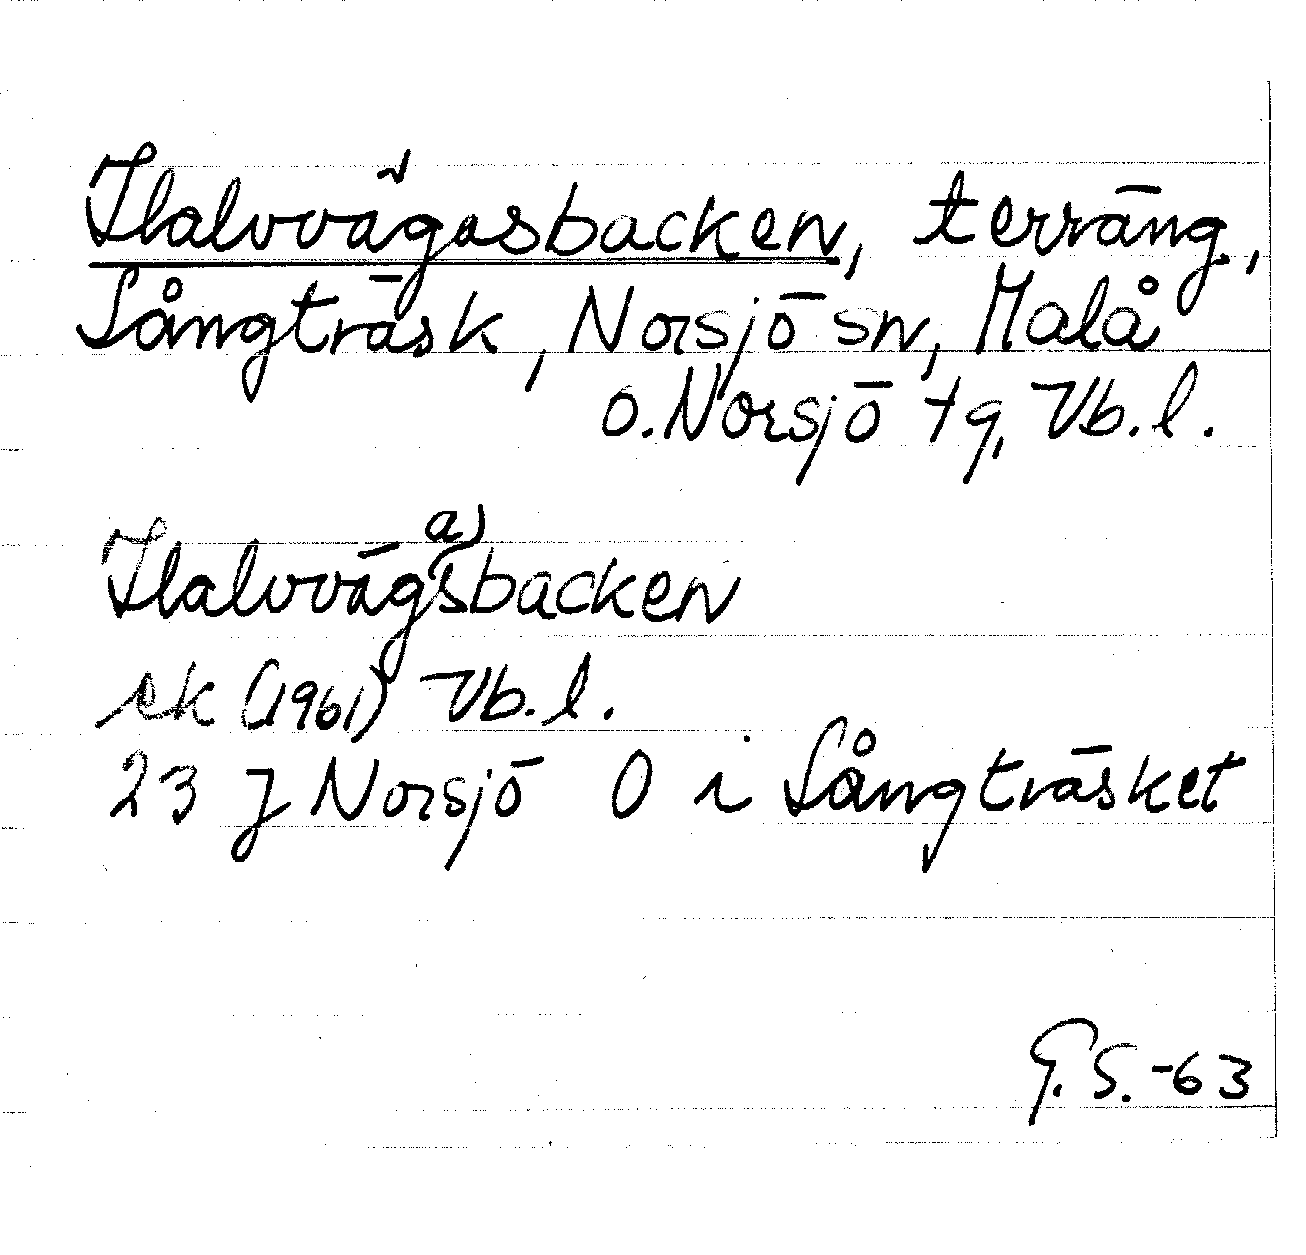 Halvvägasbacken, terräng,
Långträsk, Norsjö sn, Malå
o. Norsjö tg, Vb. l.
Halvväg(a)sbacken
ek (1961) Vb. l.
23 J Norsjö O i Långträsket
G. S. -63